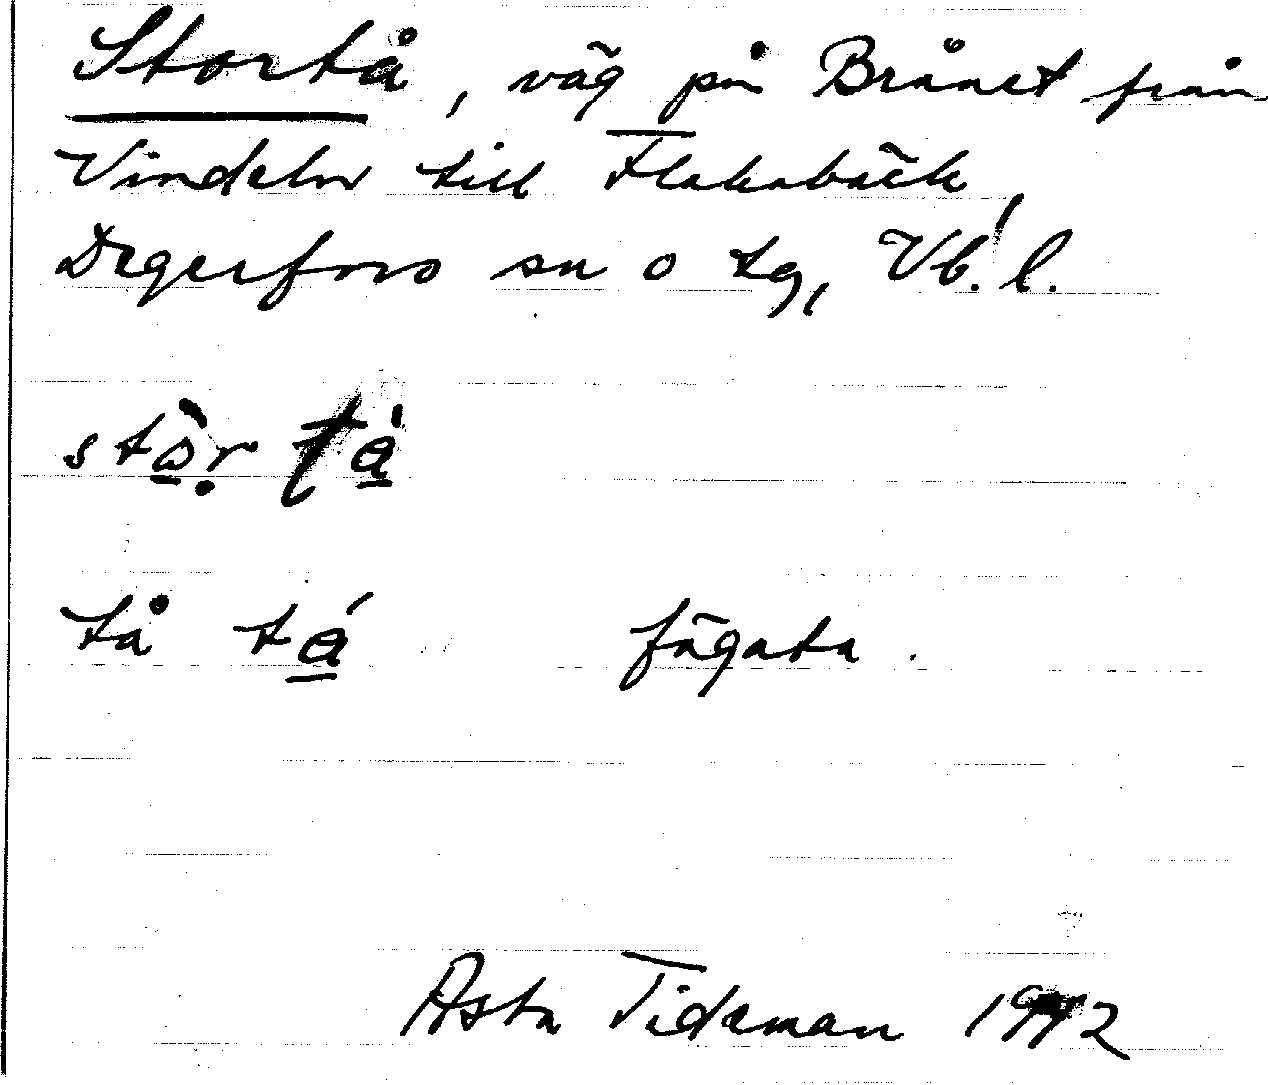 Stortå, väg på Brånet från
Vindeln till Flakabäck,
Degerfors sn o tg, Vb. l.
tå tá fägata.
Asta Tideman 1942